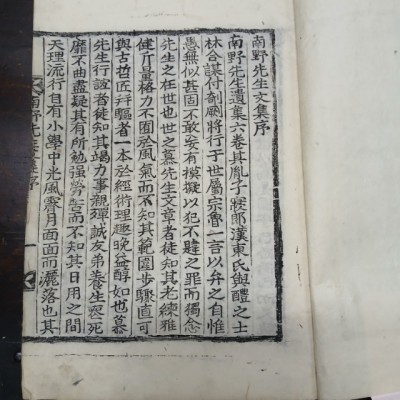 南野先生文集序
南野先生遺集六卷其胤子掞郎漢東氏與醴之士
林合謀付剞劂將行于世屬宗魯一言以弁之自惟
愚無似甚固不敢妄有模擬以犯不韙之罪而獨念
先生之在世也世之慕先生文章者徒知其老練雅
健斤量格力不囿於風氣而不知其範圍步驟直可
與古哲匠幷驅者一本於經術理趣晩益醇如也慕
先生行誼者徒知其竭力事親殫誠友弟養生喪死
靡不曲盡疑其有所勉强勞苦而不知其日用之間
天理流行自有小學中光風霽月面面而灑落也其
南野先生文集序